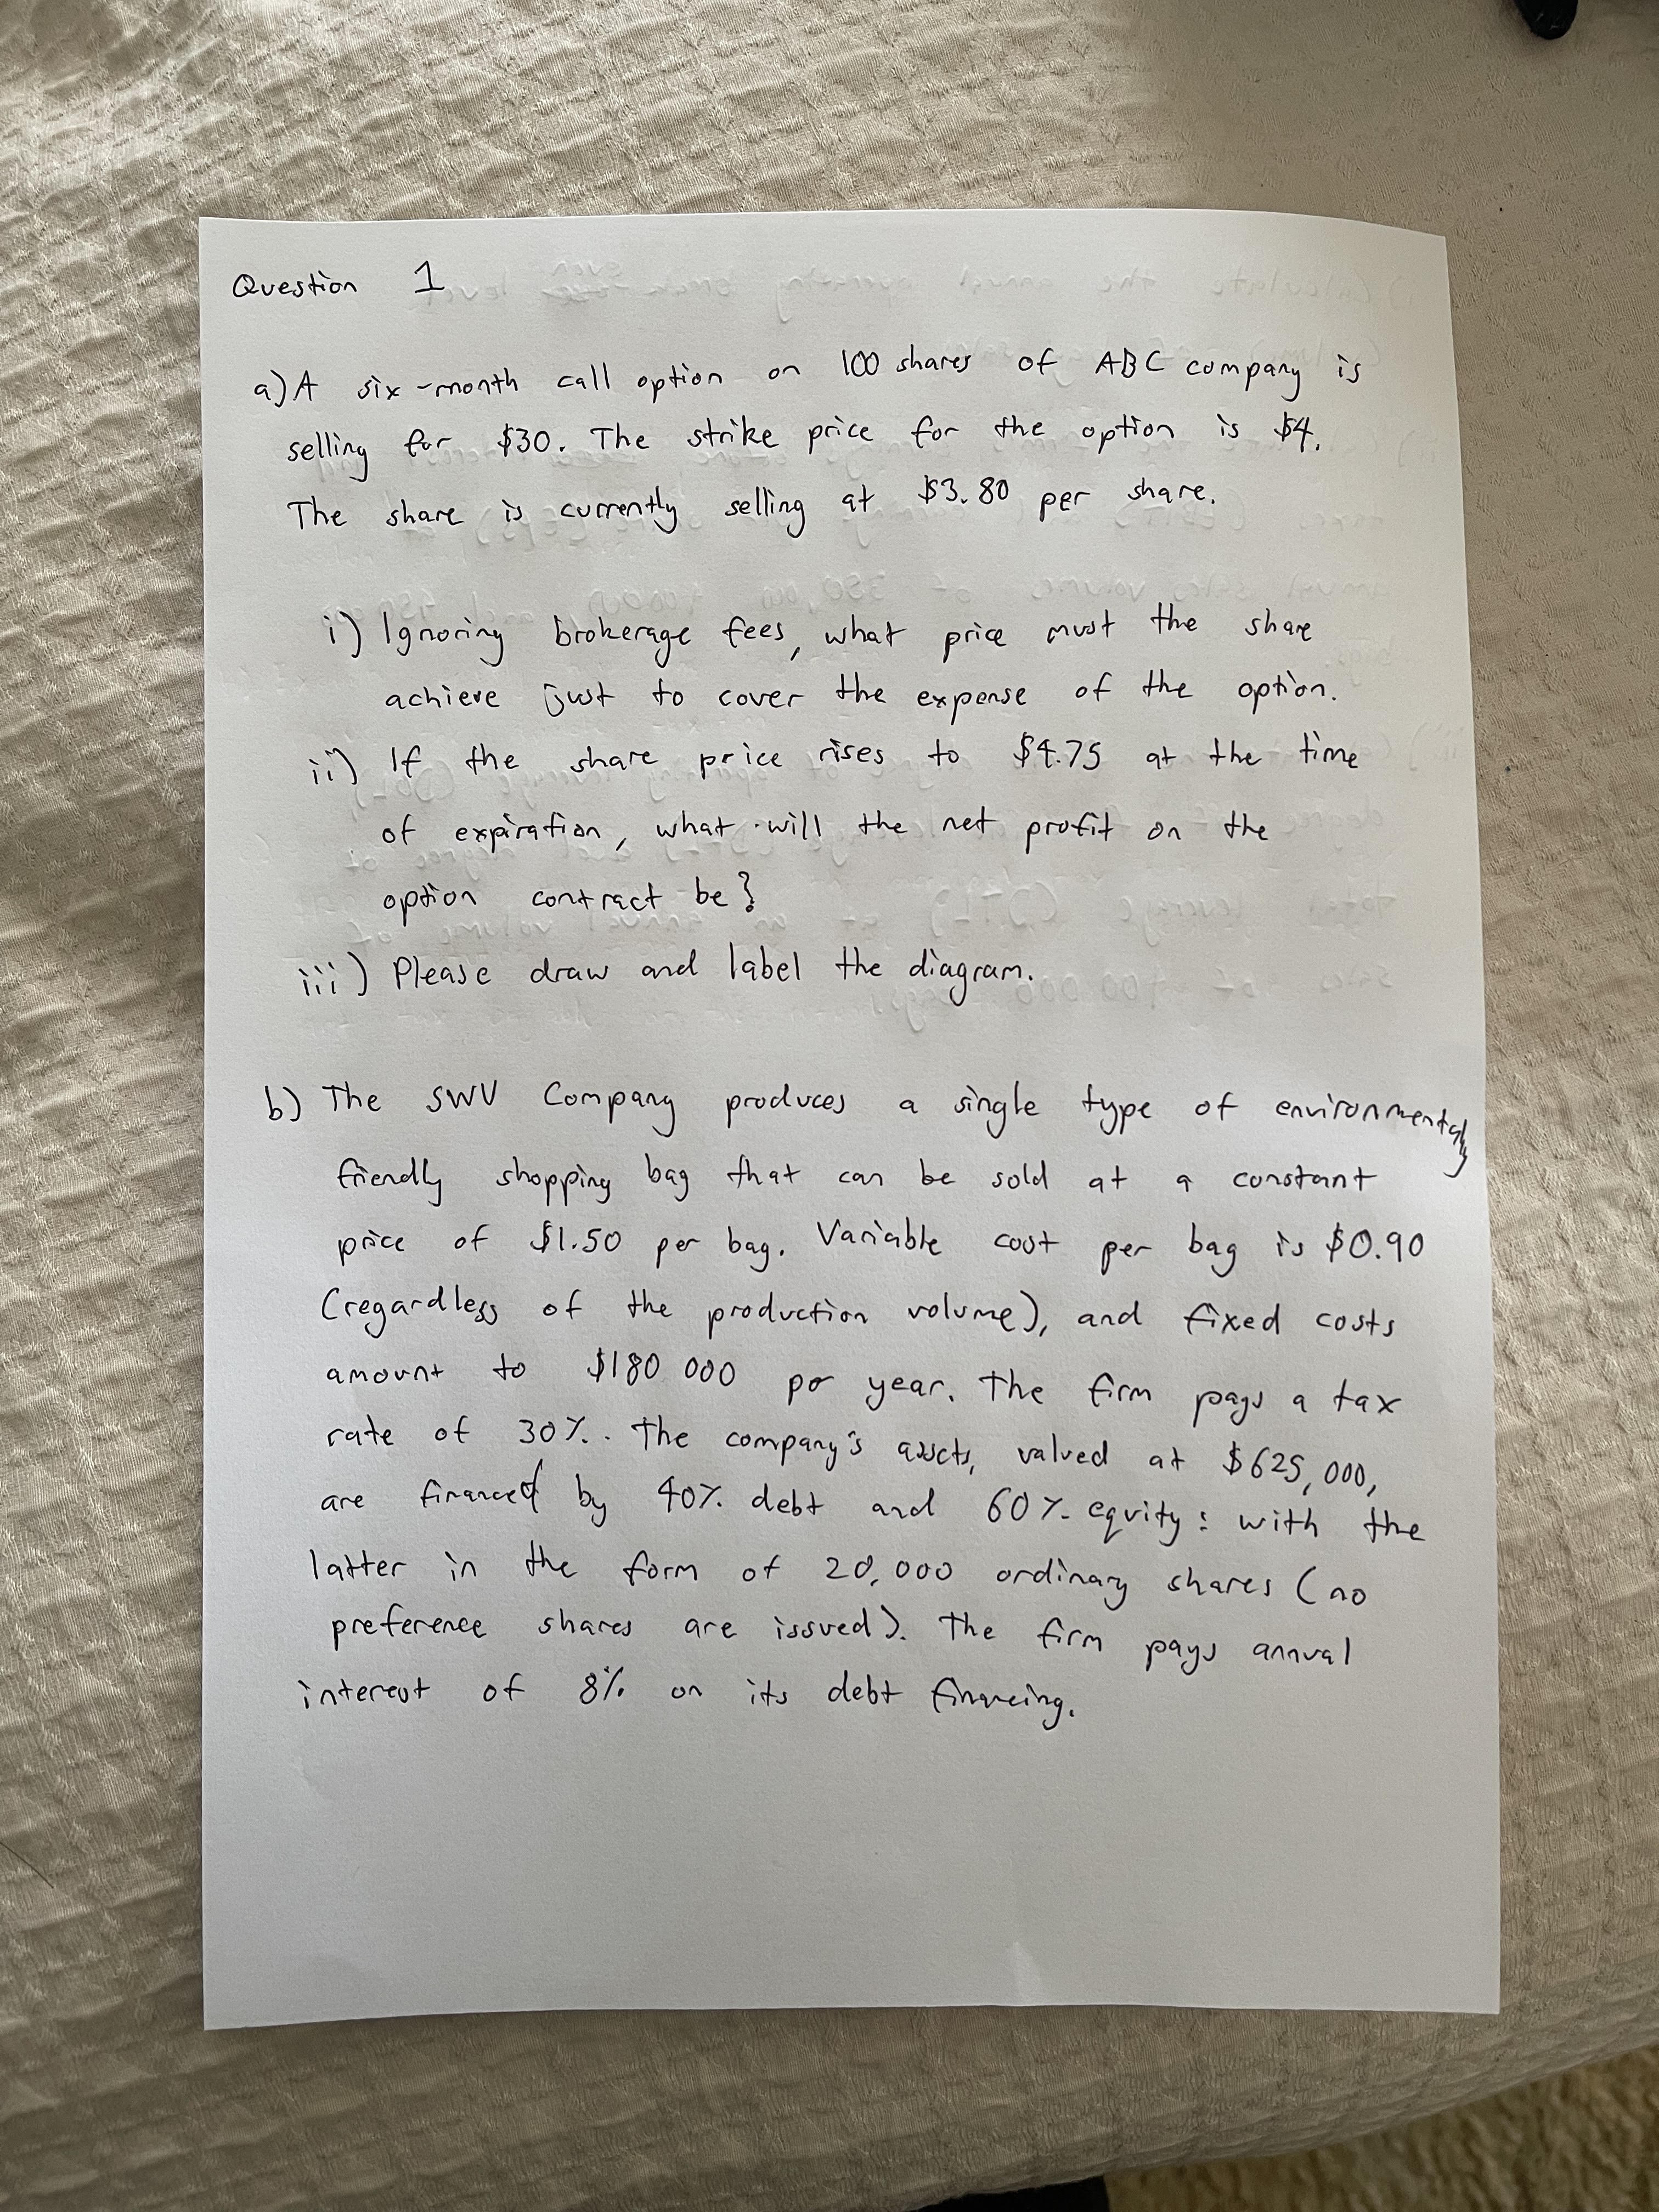 Question 1
a) A six-month call option on 100 shares of ABC company is
selling for $30. The strike price for the option is $4.
The share is currently selling at $3.80 per share.
i) Ignoring brokerage fees, what price must the share
achieve just to cover the expense of the option.
ii) If the share price rises to $4.75 at the time
of expiration, what will the net profit on the
option contract be?
iii) Please draw and label the diagram.
b) The SWV Company produces a single type of environmentally
friendly shopping bag that can be sold at a constant
price of $1.50 per bag. Variable cost per bag is $0.90
(regardless of the production volume), and fixed costs
amount to $180 000 per year. The firm pays a tax
rate of 30%. The company's assets, valued at $625,000,
are financed by 40% debt and 60% equity: with the
latter in the form of 20,000 ordinary shares (no
preference shares are issued). The firm pays annual
interest of 8% on its debt financing.